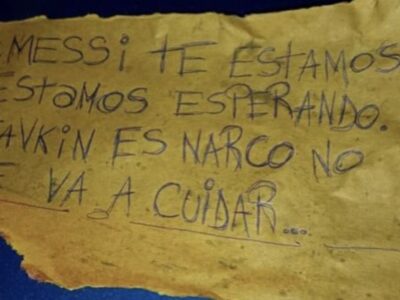 MESSI TE ESTAMOS
ESTAMOS ESPERANDO.
JAVKIN ES NARCO NO
TE VA A CUIDAR...